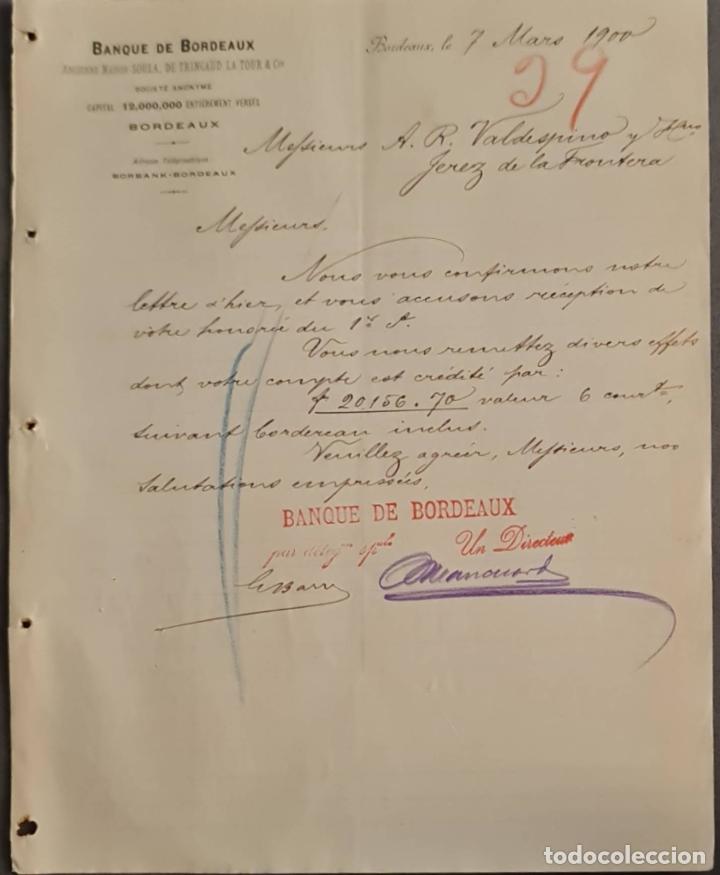 BANQUE DE BORDEAUX
ANCIENNE MAISON SOULA, DE TRINCAUD LA TOUR & Cie
SOCIÉTÉ ANONYME
CAPITAL 12,000,000 ENTIÈREMENT VERSÉS
BORDEAUX
Adresse Télégraphique
BORBANK-BORDEAUX
Bordeaux, le 7 Mars 1900
59
Messieurs A. R. Valdespino y Hno
Jerez de la Frontera
Messieurs,
Nous vous confirmons notre
lettre d'hier, et vous accusons réception de
votre honorée du 1er ct.
Vous nous remettez divers effets
dont votre compte est crédité par:
f 20156.70 valeur 6 court,
suivant bordereau inclus.
Veuillez agréer, Messieurs, nos
salutations empressées,
BANQUE DE BORDEAUX
par délégon spale Un Directeur
todocoleccion
todocoleccion.net